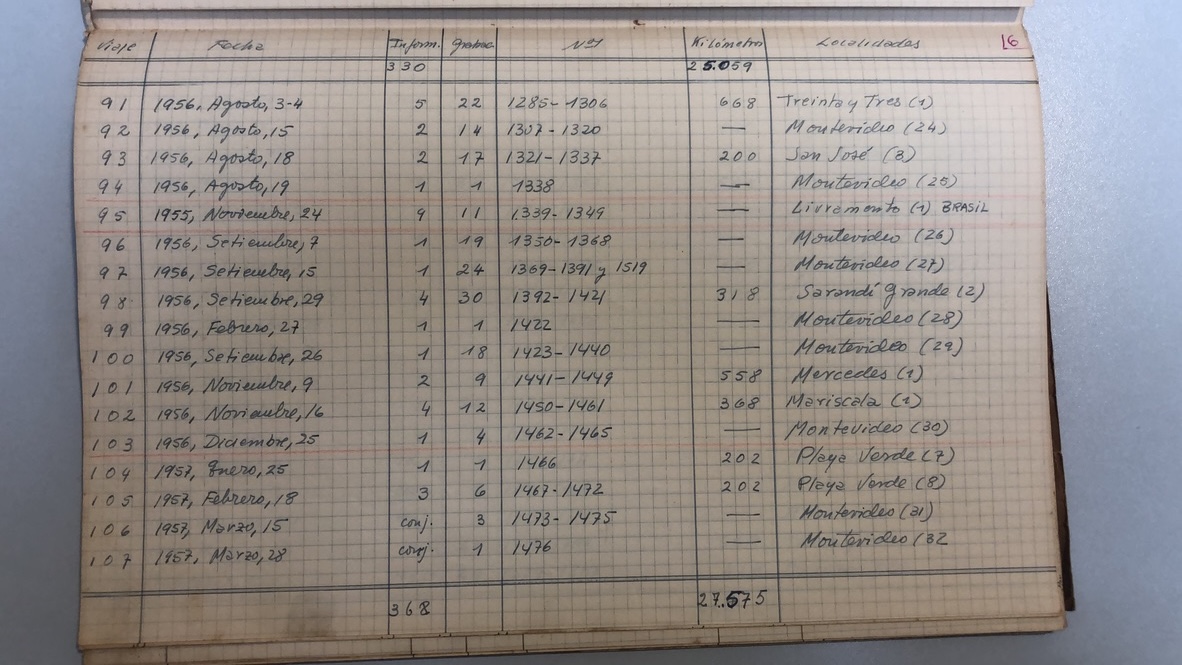 Viaje Fecha Inform. Grabac. Nos Kilómetros Localidades 16
330 25.059
91 1956, Agosto, 3-4 5 22 1285-1306 668 Treinta y Tres (1)
92 1956, Agosto, 15 2 14 1307-1320 — Montevideo (24)
93 1956, Agosto, 18 2 17 1321-1337 200 San José (3)
94 1956, Agosto, 19 1 1 1338 — Montevideo (25)
95 1955, Noviembre, 24 9 11 1339-1349 — Livramento (1) BRASIL
96 1956, Setiembre, 7 1 19 1350-1368 — Montevideo (26)
97 1956, Setiembre, 15 1 24 1369-1391 y 1519 — Montevideo (27)
98 1956, Setiembre, 29 4 30 1392-1421 318 Sarandí Grande (2)
99 1956, Febrero, 27 1 1 1422 — Montevideo (28)
100 1956, Setiembre, 26 1 18 1423-1440 — Montevideo (29)
101 1956, Noviembre, 9 2 9 1441-1449 558 Mercedes (1)
102 1956, Noviembre, 16 4 12 1450-1461 368 Mariscala (1)
103 1956, Diciembre, 25 1 4 1462-1465 — Montevideo (30)
104 1957, Enero, 25 1 1 1466 202 Playa Verde (7)
105 1957, Febrero, 18 3 6 1467-1472 202 Playa Verde (8)
106 1957, Marzo, 15 conj. 3 1473-1475 — Montevideo (31)
107 1957, Marzo, 28 conj. 1 1476 — Montevideo (32
368 27.575